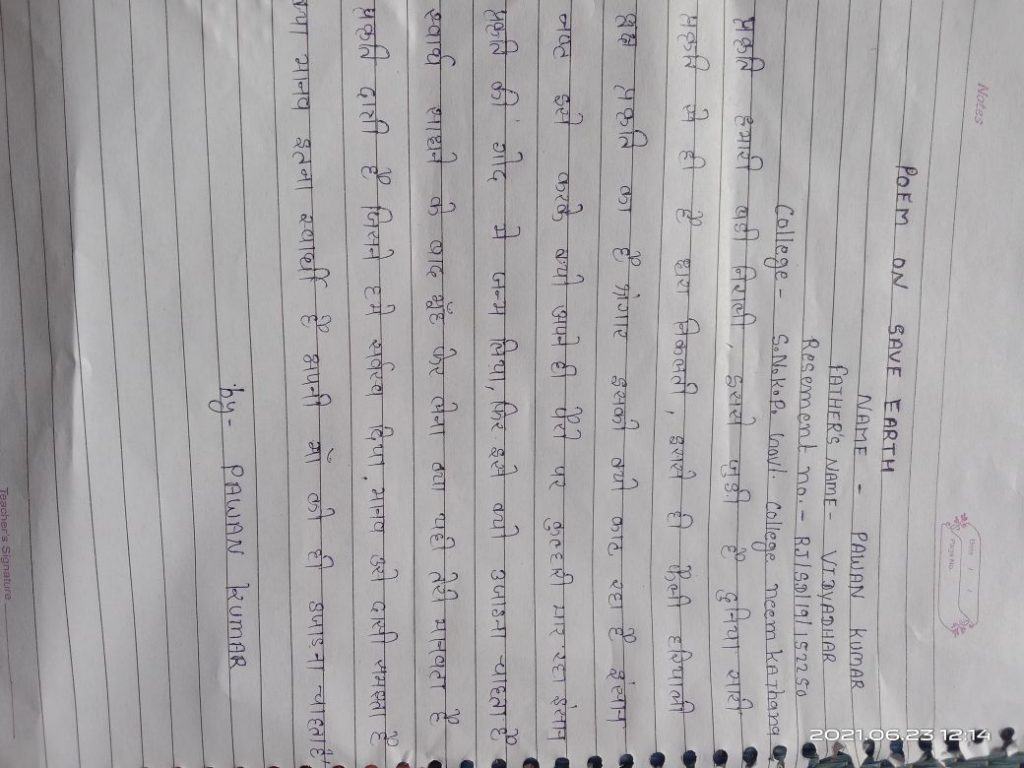 Notes
Date / /
Page No.
POEM ON SAVE EARTH
NAME - PAWAN KUMAR
FATHER'S NAME - VIDYADHAR
Resement no. - RJ/SDI/A/152250
College - S.N.K.P. Govt. College neem kathana
प्रकृति हमारी बड़ी निराली, इससे जुड़ी है दुनिया सारी
प्रकृति से ही है धरा निकलती, इससे ही फैली हरियाली
वृक्ष प्रकृति का है श्रंगार इसको क्यों काट रहा है इंसान
नष्ट इसे करके क्यों अपने ही पैरों पर कुल्हाड़ी मार रहा इंसान
प्रकृति की गोद में जन्म लिया, फिर इसे क्यों उजाड़ना चाहता है
स्वार्थ साधने के बाद मुँह फेर लेना क्या यही तेरी मानवता है
प्रकृति दासी है जिसने हमे सर्वस्व दिया, मानव इसे दासी समझा है
क्या मानव इतना स्वार्थी है अपनी माँ को ही उजाड़ना चाहता है
by- PAWAN KUMAR
Teacher's Signature
2021.06.23 12:14